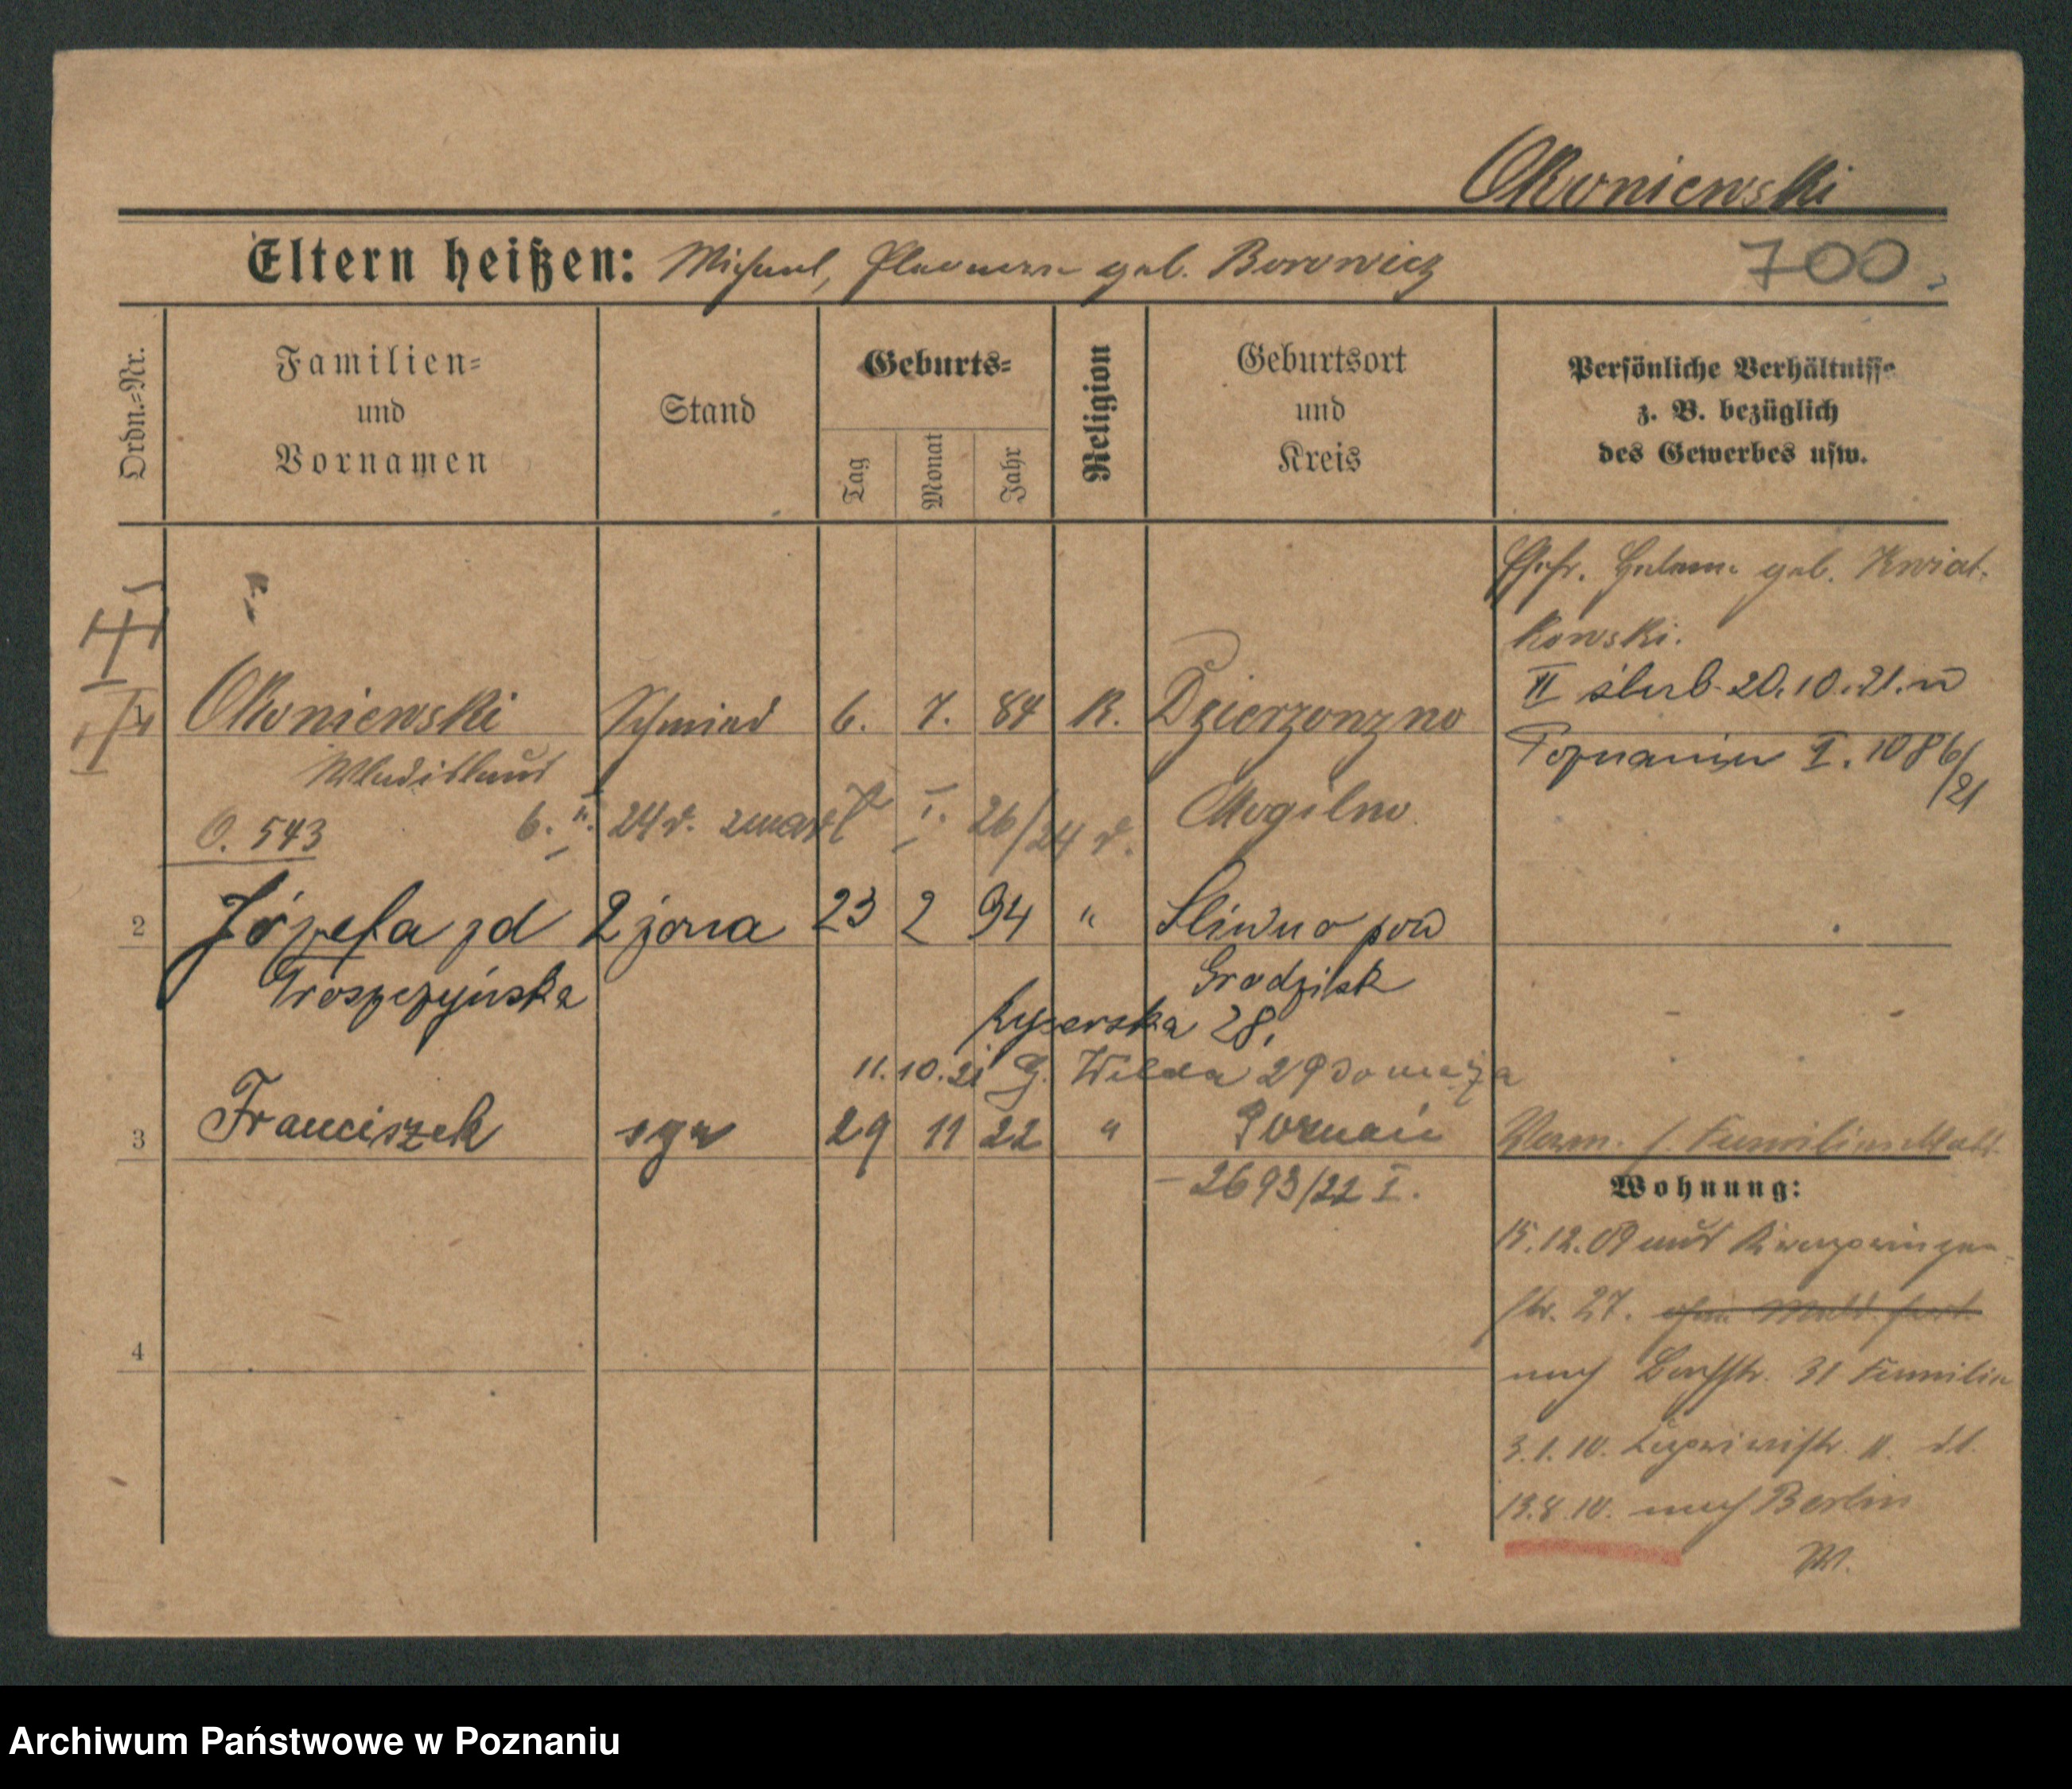 Okoniewski
Eltern heißen: Michael, geb. Borowicz
700.
Ordn.-Nr.
Familien-
und
Vornamen
Stand
Geburts-
Tag
Monat
Jahr
Religion
Geburtsort
und
Kreis
Persönliche Verhältnisse
z. B. bezüglich
des Gewerbes usw.
Ehefr. Helene geb. Kwiat-
kowski.
II ślub 20.10.21. w
Poznaniu I. 1086/21
1 Okoniewski Schmied 6. 7. 84 K. Dzierzonzno
Wladislaus
Mogilno
O. 543 6. II. 24 r. zmarł I. 26/24 r.
2 Józefa zd 2 żona 23 2 94 " Śliwno pow
Troszczyńska Grodzisk
Rycerska 28.
11.10.21 G. Wilda 29
3 Franciszek syn 29 11 22 " Poznań
- 2693/22 I.
Wohnung:
15.12.09
str. 27.
nach 31 Familie
4
3.1.10. 11.
13.8.10. nach Berlin
Archiwum Państwowe w Poznaniu